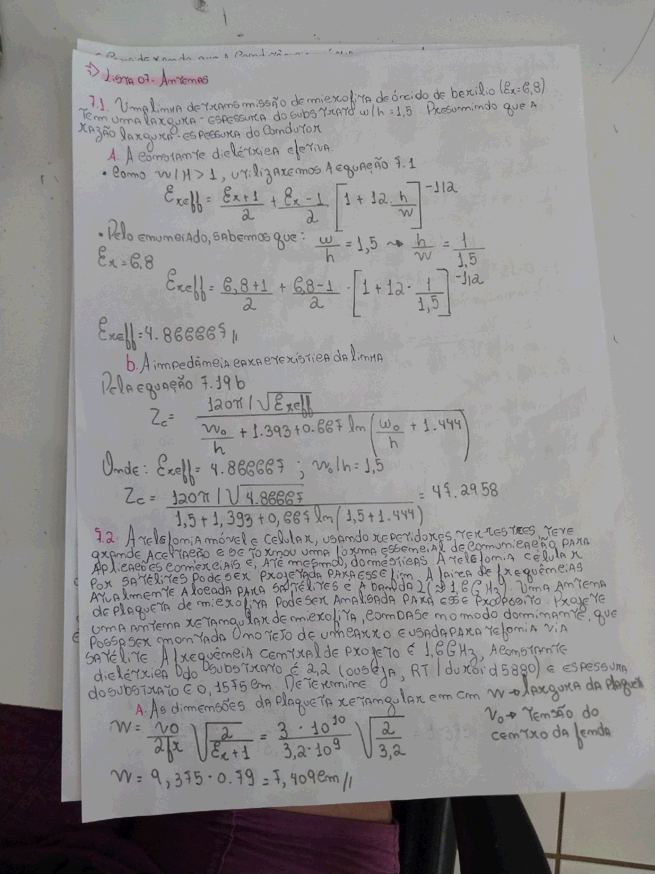 7) Lista 07 - Antenas
7.1. Uma linha de transmissão de microfita de óxido de berílio (Ɛr=6,8)
tem uma largura - espessura do substrato w/h = 1,5. Presumindo que a
razão largura - espessura do condutor
A. A constante dielétrica efetiva.
• Como W/H > 1, utilizaremos a equação 7.1
Ɛreff = Ɛr+1/2 + Ɛr-1/2 [1 + 12 h/w]^-1/2
• Pelo enunciado, sabemos que: w/h = 1,5 → h/w = 1/1,5
Ɛr = 6,8
Ɛreff = 6,8+1/2 + 6,8-1/2 · [1 + 12 · 1/1,5]^-1/2
Ɛreff = 4.866667 //
b. A impedância característica da linha
Pela equação 7.19b
Zc = 120π/√Ɛreff / w0/h + 1.393 + 0.667 ln(w0/h + 1.444)
Onde: Ɛreff = 4.866667 ; w0/h = 1,5
Zc = 120π/√4.86667 / 1,5 + 1,393 + 0,667 ln(1,5+1.444) = 47.2958
7.2. A telefonia móvel e celular, usando repetidores terrestres, teve
grande aceitação e se tornou uma forma essencial de comunicação para
aplicações comerciais e, até mesmo, domésticas. A telefonia celular
por satélites pode ser projetada para esse fim. A faixa de frequências
atualmente alocada para satélites é a banda L (≈ 1,6 GHz). Uma antena
de plaqueta de microfita pode ser analisada para esse propósito. Projete
uma antena retangular de microfita, com base no modo dominante, que
possa ser montada no teto de um carro e usada para telefonia via
satélite. A frequência central de projeto é 1,6 GHz, a constante
dielétrica do substrato é 2,2 (ou seja, RT/duroid 5880) e espessura
do substrato é 0,1575 cm. Determine
A. As dimensões da plaqueta retangular em cm
W → largura da plaqueta
V0 → tensão do
centro da fenda
W = v0/2fr √2/Ɛr+1 = 3 · 10^10/3,2·10^9 √2/3,2
W = 9,375 · 0.79 = 7,409cm //